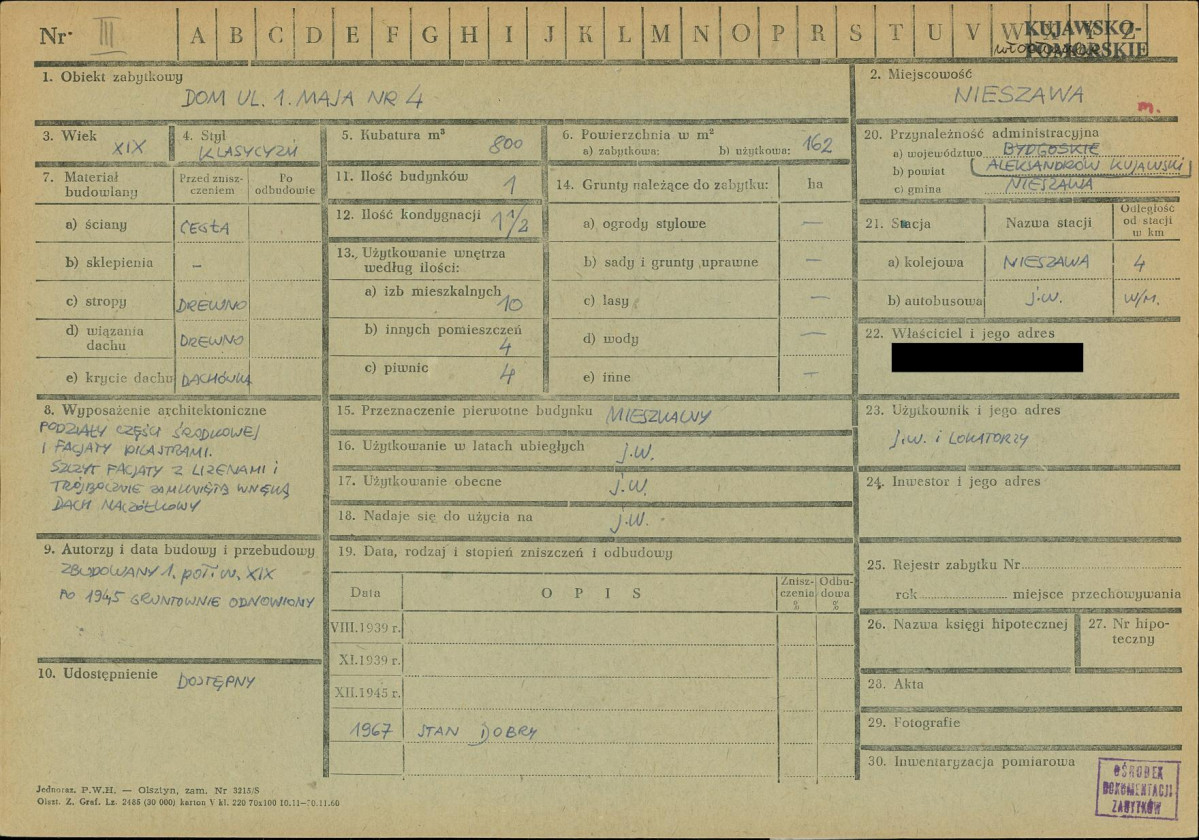 Nr III A B C D E F G H I J K L M N O P R S T U V W
KUJAWSKO-
POMORSKIE
1. Obiekt zabytkowy
DOM UL. 1. MAJA NR 4
2. Miejscowość
NIESZAWA
m.
3. Wiek
XIX
4. Styl
KLASYCYZM
5. Kubatura m³
800
6. Powierzchnia w m²
a) zabytkowa: b) użytkowa: 162
20. Przynależność administracyjna
a) województwo BYDGOSKIE
b) powiat ALEKSANDRÓW KUJAWSKI
c) gmina NIESZAWA
7. Materiał budowlany
Przed zniszczeniem
Po odbudowie
a) ściany CEGŁA
b) sklepienia –
c) stropy DREWNO
d) wiązania dachu DREWNO
e) krycie dachu DACHÓWKA
11. Ilość budynków 1
12. Ilość kondygnacji 1 1/2
13. Użytkowanie wnętrza
według ilości:
a) izb mieszkalnych 10
b) innych pomieszczeń 4
c) piwnic 4
14. Grunty należące do zabytku: ha
a) ogrody stylowe –
b) sady i grunty uprawne –
c) lasy –
d) wody –
e) inne –
21. Stacja Nazwa stacji Odległość od stacji w km
a) kolejowa NIESZAWA 4
b) autobusowa j.w. W/M.
22. Właściciel i jego adres
8. Wyposażenie architektoniczne
PODZIAŁY CZĘŚCI ŚRODKOWEJ
I FACJATY PILASTRAMI.
SZCZYT FACJATY Z LIZENAMI I
TRÓJBOCZNIE ZAMKNIĘTĄ WNĘKĄ
DACH NACZÓŁKOWY
15. Przeznaczenie pierwotne budynku MIESZKALNY
16. Użytkowanie w latach ubiegłych j.w.
17. Użytkowanie obecne j.w.
18. Nadaje się do użycia na j.w.
23. Użytkownik i jego adres
j.w. i LOKATORZY
24. Inwestor i jego adres
9. Autorzy i data budowy i przebudowy
ZBUDOWANY 1. poł. w. XIX
PO 1945 GRUNTOWNIE ODNOWIONY
19. Data, rodzaj i stopień zniszczeń i odbudowy
Data OPIS Zniszczenia % Odbudowa %
VIII.1939 r.
XI.1939 r.
XII.1945 r.
1967 STAN DOBRY
25. Rejestr zabytku Nr
rok miejsce przechowywania
26. Nazwa księgi hipotecznej
27. Nr hipoteczny
10. Udostępnienie DOSTĘPNY
28. Akta
29. Fotografie
30. Inwentaryzacja pomiarowa
OŚRODEK
DOKUMENTACJI
ZABYTKÓW
Jednoraz. P.W.H. — Olsztyn, zam. Nr 3215/S
Olszt. Z. Graf. Lz. 2485 (30 000) karton V kl. 220 70x100 10.11—10.11.60